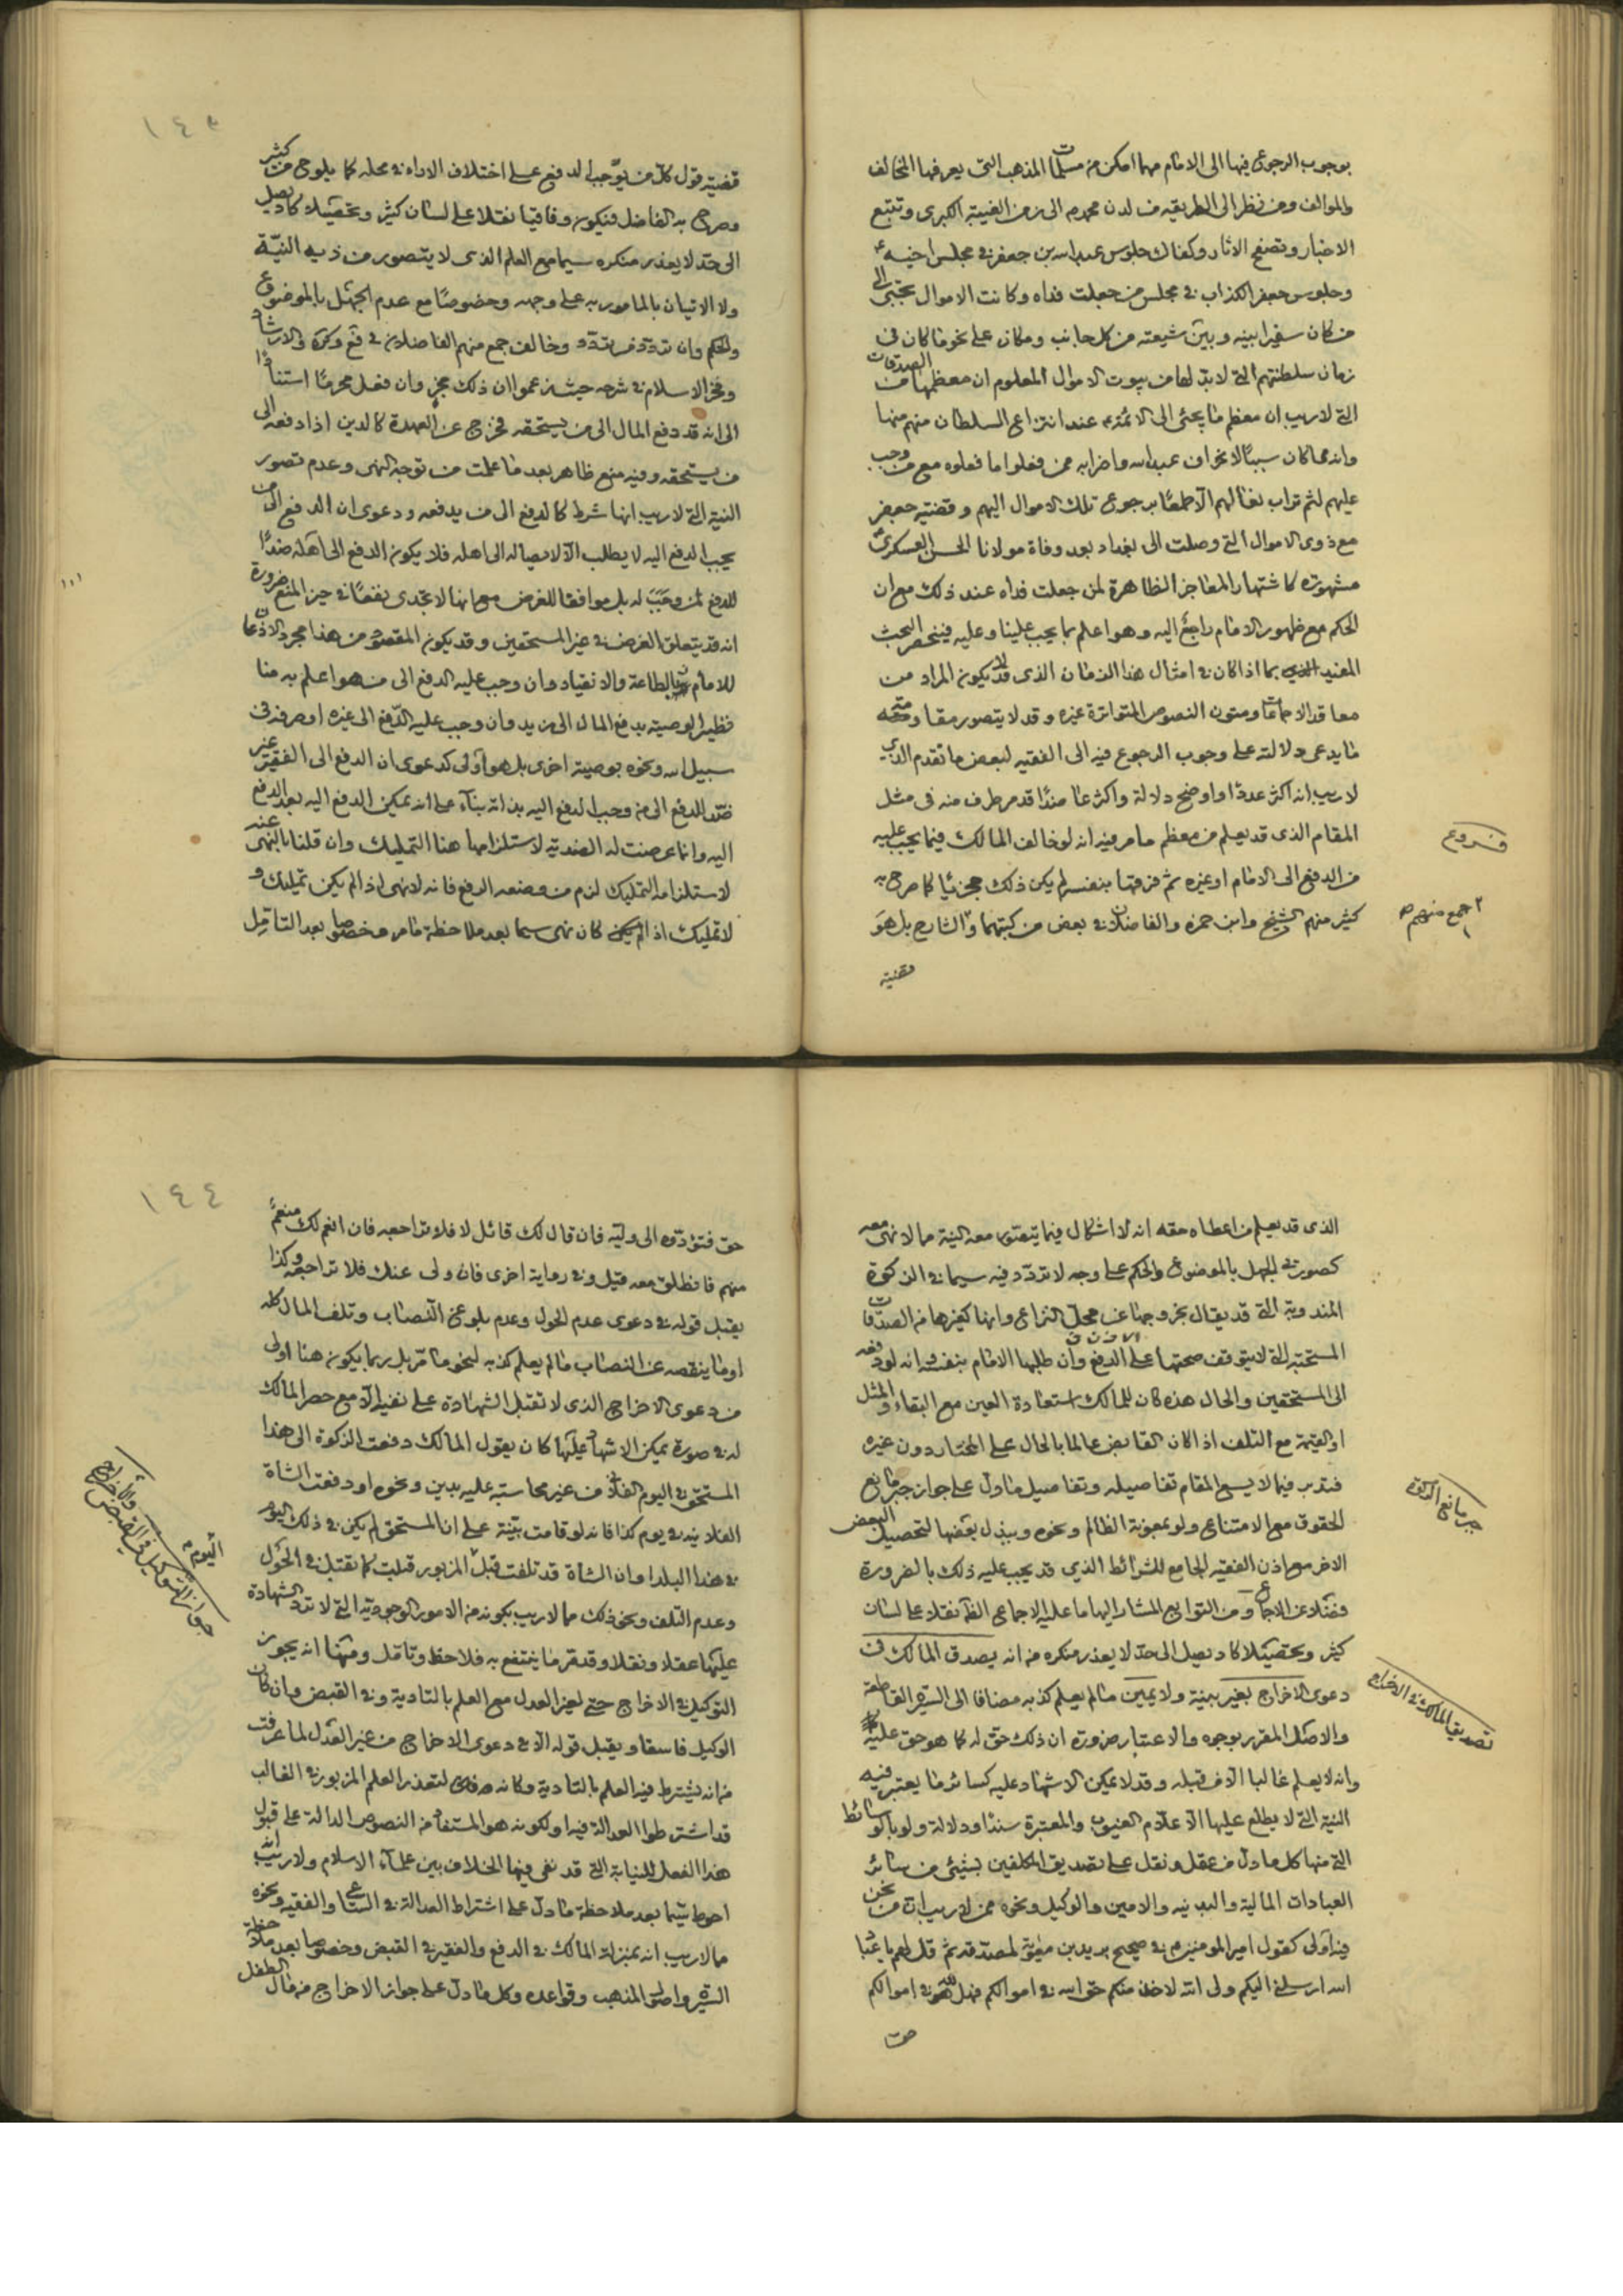 بوجوب الرجوع فيها الى الامام مهما امكن من مسلمات المذهب التى يعرفها المخالف
والموالف ومن نظر الى الطريقه من لدن محمد ص الى زمن الغيبة الكبرى وتتبع
الاخبار وتصفح الاثار وكفاك جلوس عبد الله بن جعفر فى مجلس اخيه ع
وجلوس جعفر الكذاب فى مجلس من جعلت فداه وكانت الاموال تجبى الى
من كان سفيرا بينه وبين شيعته من كل جانب ومكان على نحو ما كان فى
زمان سلطنتهم التى لابد لها من بيوت الاموال المعلوم ان معظمها من الصدقات
التى لا ريب ان معظم ما يجئى الى الائمة ع عند انتزاع السلطان منهم منها
وانه مما كان سببا لانحراف عبد الله واضرابه ممن فعلوا ما فعلوه مع من وجب
عليهم لثم تراب نعالهم الا طمعا برجوع تلك الاموال اليهم وقضية جعفر
مع ذوى الاموال التى وصلت الى بغداد بعد وفاة مولانا الحسن العسكرى
مشهورة كاشتهار المعاجز الظاهرة لمن جعلت فداه عند ذلك مع ان
الحكم مع ظهور الامام راجع اليه وهو اعلم بما يجب علينا وعليه فينحصر البحث
المفيد بما اذا كان فى امثال هذا الزمان الذى قد لا يكون المراد من
معاقد الاجماعات ومتون النصوص المتواترة غيره وقد لا يتصور مقاومته
ما يدعى دلالته على وجوب الرجوع فيه الى الفقيه لبعض ما تقدم الذى
لا ريب انه اكثر عددا واوضح دلالة واكثرها سندا قد مر طرف منه فى مثل
المقام الذى قد يعلم من معظم ما مر فيه انه لو خالف المالك فيما يجب عليه
من الدفع الى الامام او غيره ثم فرقها بنفسه لم يكن ذلك مجزيا كما صرح به
كثير منهم الشيخ وابن حمزه والفاضلان فى بعض من كتبهما والشارح بل هو
قضية
فروع
جمع منهم ص
١٤٣
قضية قول كل من يوجب الدفع على اختلاف الاراء فى محله كما يلوح من كثير
وصرح به الفاضل فيكون وفاقيا نقلا على لسان كثير وتحصيلا كاد يصل
الى حد لا يعذر منكره سيما مع العلم الذى لا يتصور من ذيه النية
ولا الاتيان بالمامور به على وجهه وخصوصا مع عدم الجهل بالموضوع
والحكم وان تردد من تردد وخالف جمع منهم الفاضلان فى قع وكره والارشاد
وفخر الاسلام فى شرحه حيث زعموا ان ذلك مجز وان فعل محرما استنادا
الى انه قد دفع المال الى من يستحقه فخرج عن العهدة كالدين اذا دفعه الى
من يستحقه وفيه منع ظاهر بعد ما علمت من توجه النهى وعدم تصور
النية التى لا ريب انها شرط كالدفع الى من يدفعه ودعوى ان الدفع الى من
يجب الدفع اليه لا يطلب الا لايصاله الى اهله فلا يكون الدفع الى اهله ضدا
للدفع لمن وجب له بل موافقا للغرض مع انها لا تجدى نفعا فى حيز المنع ضرورة
انه قد يتعلق الغرض فى غير المستحقين وقد يكون المقصود من هذا مجرد الاذعان
للامام ع بالطاعة والانقياد وان وجب عليه الدفع الى من هو اعلم به منا
نظير الوصية بدفع المال الى زيد وان وجب عليه الدفع الى غيره او صرفه فى
سبيل الله ونحوه بوصية اخرى بل هو اولى كدعوى ان الدفع الى الفقير غير
ضد للدفع الى من وجب الدفع اليه بذاته بناء على انه يمكن الدفع اليه بعد الدفع
اليه وانما عرضت له الضدية لاستلزامها هنا التمليك وان قلنا بالنهى عنه
لاستلزامه التمليك لزم من وضعه الرفع فانه لا نهى اذا لم يكن تمليك و
لا تمليك اذا لم يكن كان نهى سيما بعد ملاحظة ما مر وخصوصا بعد التامل
الذى قد يعلم من اعطاه حقه انه لا اشكال فيما يتصور معه النية مما لا نهى معه
كصورتى الجهل بالموضوع والحكم على وجه لا تردد فيه سيما فى الزكوة
المندوبة التى قد يقال بخروجها عن محل النزاع وانها كغيرها من الصدقات
المستحبة التى لا يتوقف صحتها على الدفع وان طلبها الامام بنفسه وانه لو دفعه
الى المستحقين والحال هذه كان للمالك استعادة العين مع البقاء والمثل
او القيمة مع التلف اذا كان القابض عالما بالحال على المختار دون غيره
فتدبر فيما لا يسع المقام تفاصيله وتفاصيل ما دل على جواز جبر مانع
الحقوق مع الامتناع ولو بمعونة الظالم ونحوه وببذل بعضها لتحصيل البعض
الاخر مع اذن الفقيه الجامع للشرائط الذى قد يجب عليه ذلك بالضرورة
فضلا عن الاجماع ومن التوابع المشار اليها ما عليه الاجماع الظاهر نقلا على لسان
كثير وتحصيلا كاد يصل الى حد لا يعذر منكره من انه يصدق المالك فى
دعوى الاخراج بغير بينة ولا يمين ما لم يعلم كذبه مضافا الى السيرة القاطعة
والاصل المقرر بوجوه والاعتبار ضرورة ان ذلك حق له كما هو حق عليه
وانه لا يعلم غالبا الا من قبله وقد لا يمكن الاشهاد عليه كسائر ما يعتبر فيه
النية التى لا يطلع عليها الا علام الغيوب والمعتبرة سندا ودلالة ولو بالوسائط
التى منها كل ما دل من عقل ونقل على تصديق المكلفين بشيئى من سائر
العبادات المالية والبدنيه والامين والوكيل ونحوه ممن لا ريب ان من نحن
فيه اولى كقول امير المومنين ع فى صحيح بريد بن معوية لمصدقه ثم قل لهم يا عباد
الله ارسلنى اليكم ولى الله لاخذ منكم حق الله فى اموالكم فهل لله فى اموالكم
حق
جبر مانع الزكوة
تصديق المالك فى الاخراج
١٤٤
حق فتؤدوه الى وليه فان قال لك قائل لا فلا تراجعه فان انعم لك منعم
منهم فانطلق معه قيل وفى رواية اخرى فان ولى عنك فلا تراجعه وكذا
يقبل قوله فى دعوى عدم الحول وعدم بلوغ النصاب وتلف المال كله
او ما ينقصه عن النصاب ما لم يعلم كذبه لنحو ما مر بل ربما يكون هنا اولى
من دعوى الاخراج الذى لا تقبل الشهادة على نفيه الا مع حصر المالك
له فى صورة يمكن الاشهاد عليها كان يقول المالك دفعت الزكوة الى هذا
المستحق فى اليوم الفلانى من غير محاسبة عليه بدين ونحوه او دفعت الشاة
الفلانيه فى يوم كذا فانه لو قامت بينة على ان المستحق لم يكن فى ذلك اليوم
فى هذا البلد او ان الشاة قد تلفت قبل اليوم المزبور قبلت كما تقبل فى الحول
وعدم التلف ونحو ذلك مما لا ريب بكونه من الامور الوجودية التى لا ترد الشهادة
عليها عقلا ونقلا وقد مر ما ينتفع به فلاحظ وتامل ومنها انه يجوز
التوكيل فى الاخراج حتى لغير العدل مع العلم بالتادية وفى القبض وان كان
الوكيل فاسقا ويقبل قوله الا فى دعوى الاخراج من غير العدل لما عرفت
من انه يشترط فيه العلم بالتادية وكانه لتعذر العلم المزبور فى الغالب
قد اشترطوا العدالة فيه او لكونه هو المستفاد من النصوص الدالة على قبول
هذا الفعل للنيابة التى قد نفى فيها الخلاف بين علماء الاسلام ولا ريب انه
احوط سيما بعد ملاحظة ما دل على اشتراط العدالة فى الساعى والفقيه ونحوه
مما لا ريب انه بمنزلة المالك فى الدفع والفقير فى القبض وخصوصا بعد ملاحظة
السيرة واصول المذهب وقواعده وكل ما دل على جواز الاخراج من مال الطفل
جواز التوكيل فى القبض والاخراج